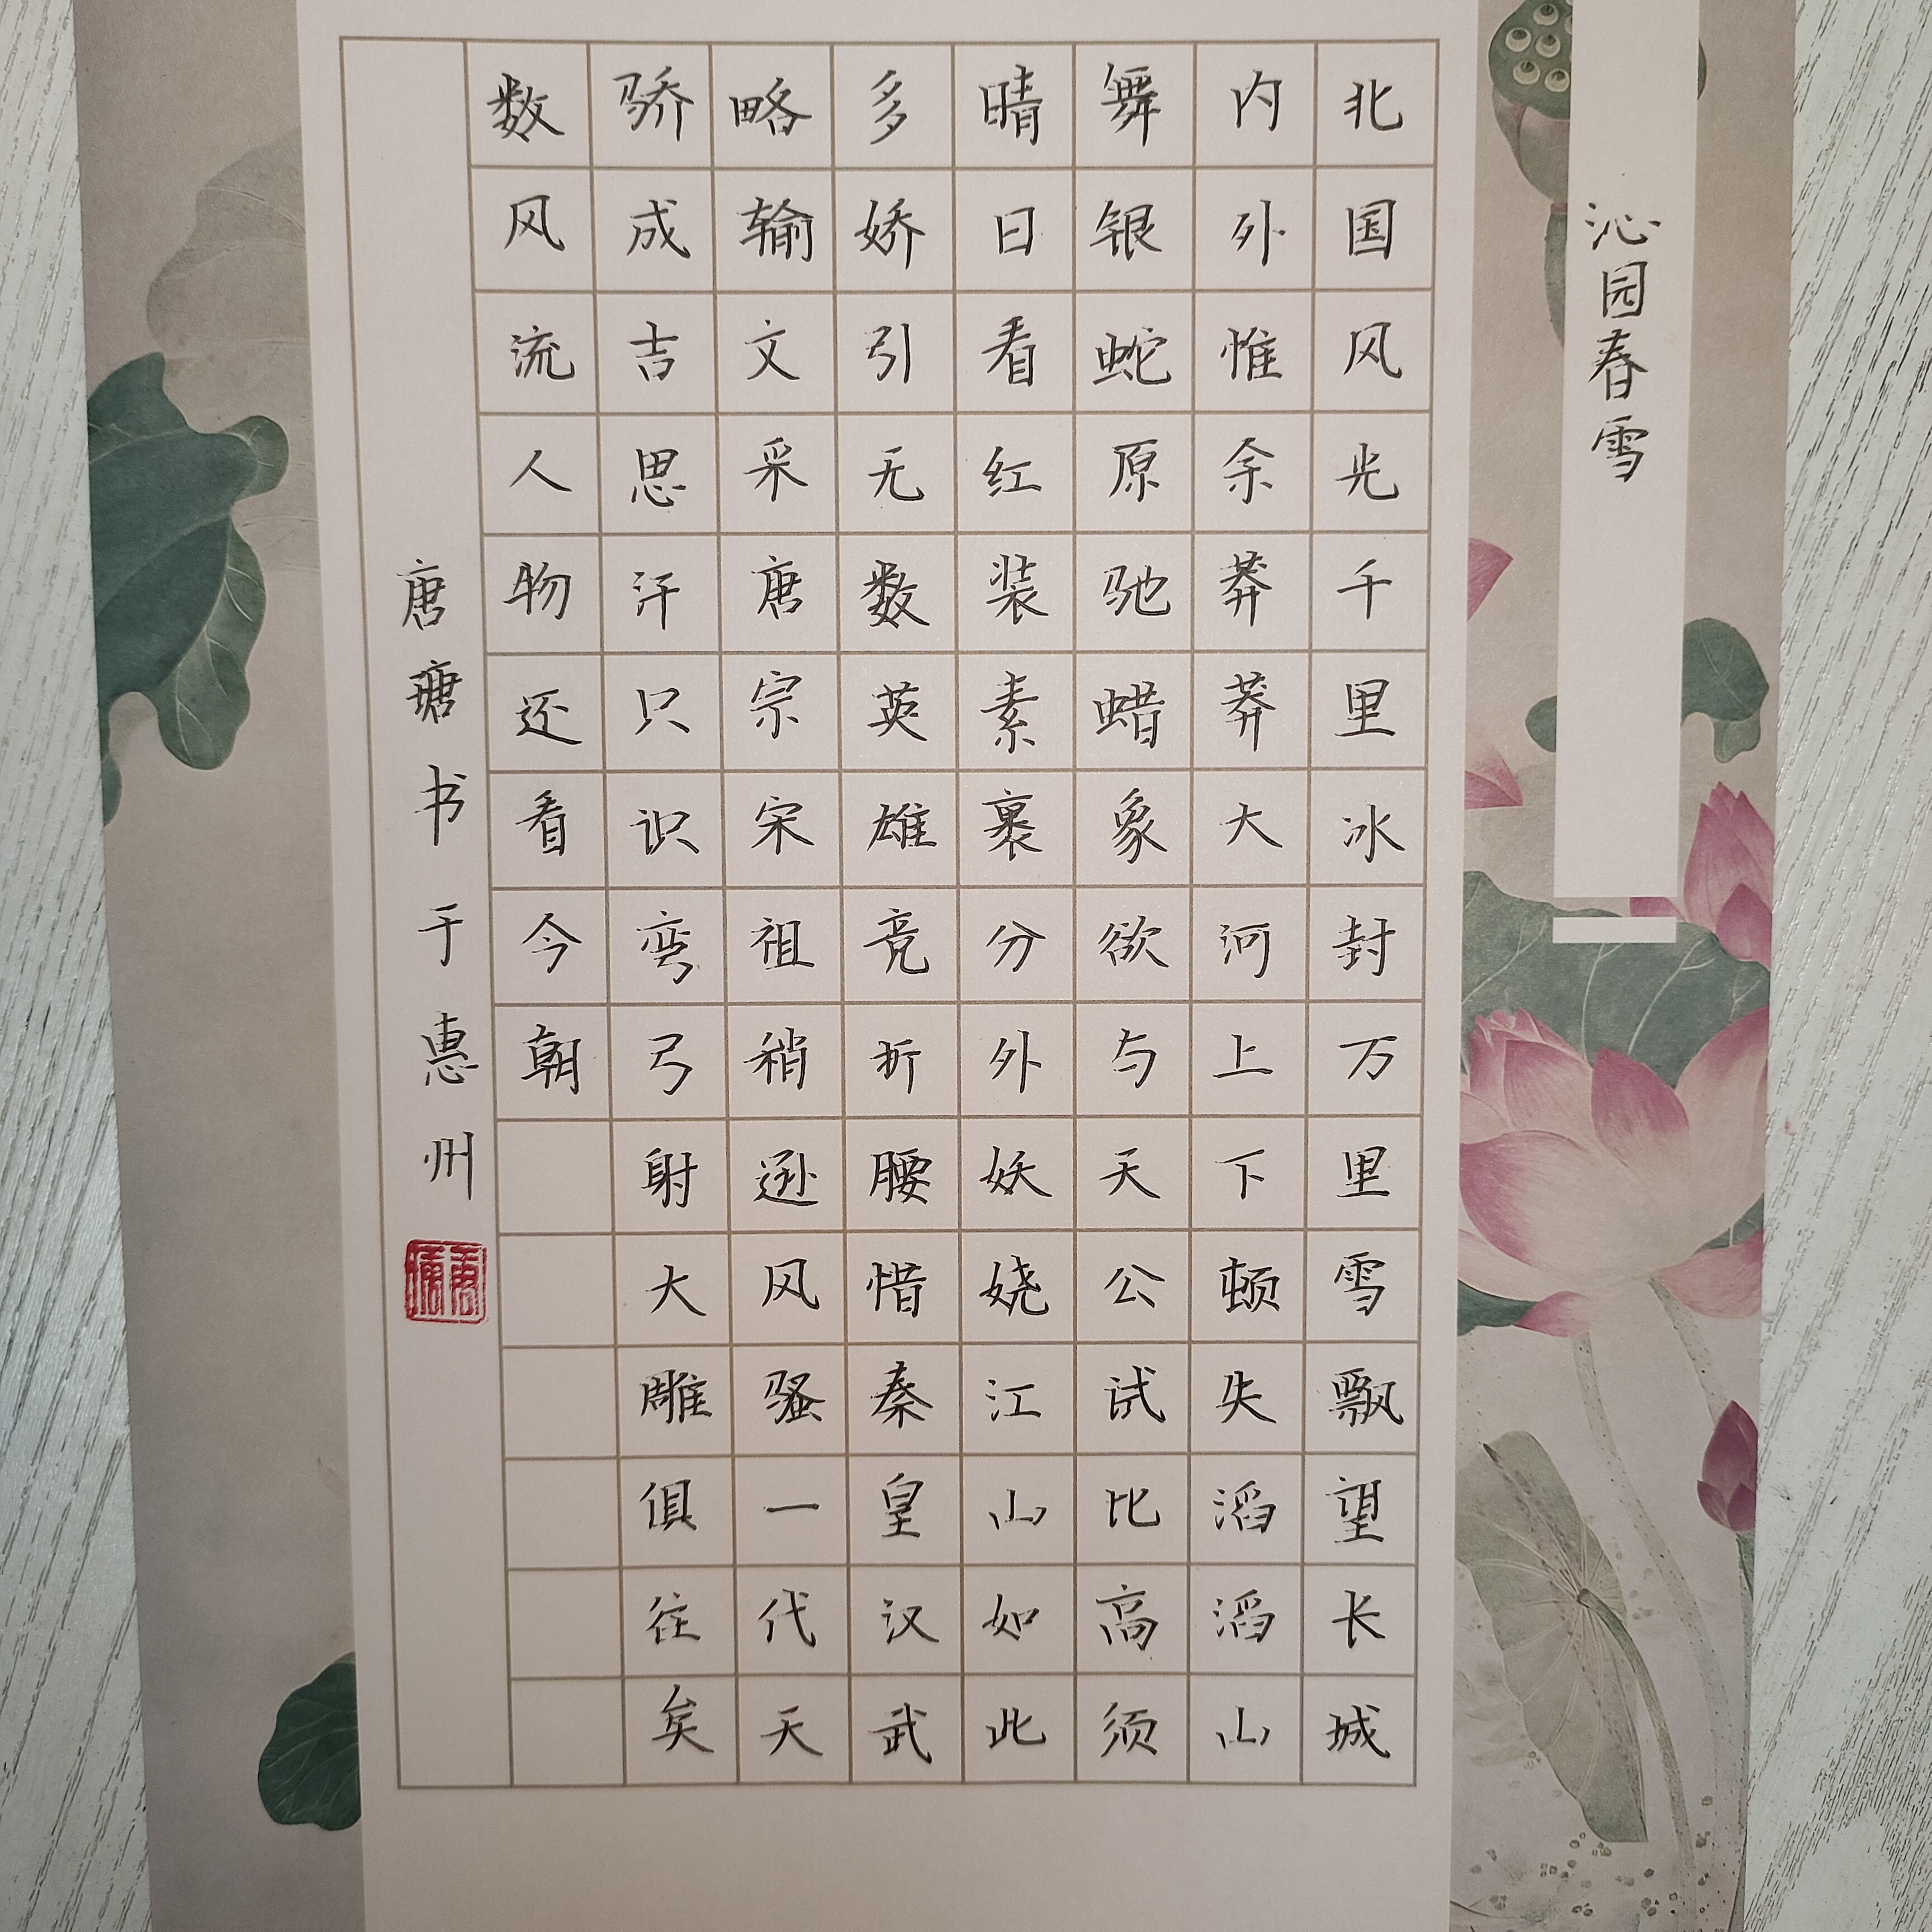 沁园春雪
北国风光千里冰封万里雪飘望长城
内外惟余莽莽大河上下顿失滔滔山
舞银蛇原驰蜡象欲与天公试比高须
晴日看红装素裹分外妖娆江山如此
多娇引无数英雄竞折腰惜秦皇汉武
略输文采唐宗宋祖稍逊风骚一代天
骄成吉思汗只识弯弓射大雕俱往矣
数风流人物还看今朝
唐瑭书于惠州